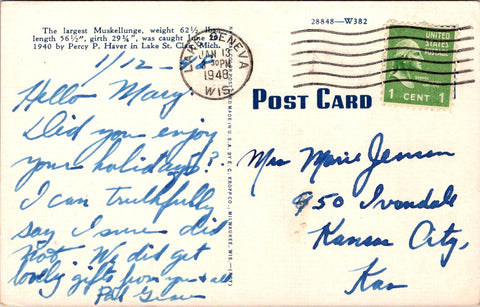 The largest Muskellunge, weight 62½ lbs.,
length 56½", girth 29¼", was caught June
1940 by Percy P. Haver in Lake St. Clair, Mich.
28848—W382
LAKE GENEVA
JAN 13
PM
1948
WIS
UNITED
STATES
POSTAGE
1 CENT 1
POST CARD
1/12-48
Hello Mary:
Did you enjoy
your holidays?
I can truthfully
say I sure did
not. We did get
lovely gifts from you & all
Mrs Marie Jensen
950 Ivandale
Kansas City,
Kan
MADE IN U.S.A. BY E. C. KROPP CO., MILWAUKEE, WIS.